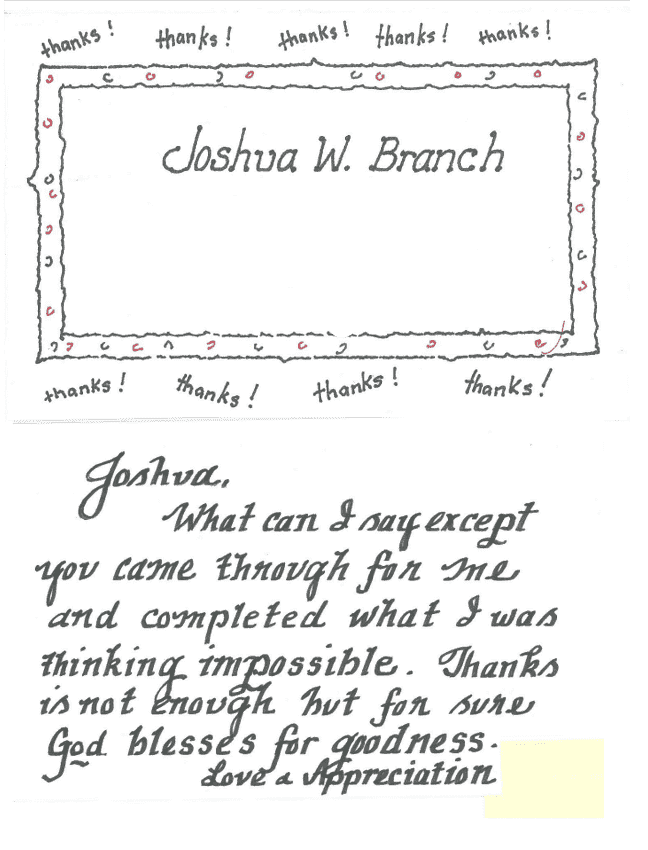 thanks! thanks! thanks! thanks! thanks!
Joshua W. Branch
thanks! thanks! thanks! thanks!
Joshua,
What can I say except
you came through for me
and completed what I was
thinking impossible. Thanks
is not enough but for sure
God blesses for goodness.
Love & Appreciation